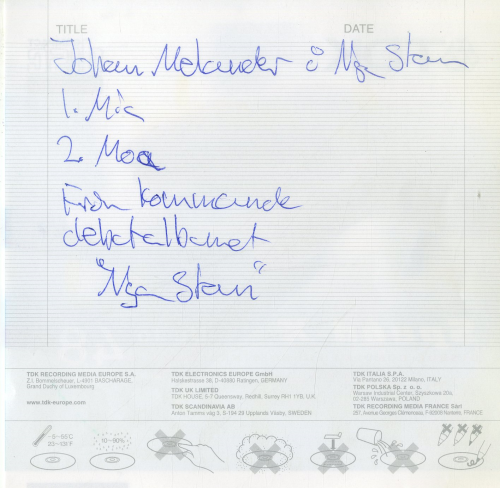 TITLE DATE
Johan Melander o Nya Stan
1. Mia
2. Moa
Från kommande
debutalbumet
"Nya Stan"
TDK RECORDING MEDIA EUROPE S.A.
Z.I. Bommelscheuer, L-4901 BASCHARAGE,
Grand Duchy of Luxembourg
www.tdk-europe.com
TDK ELECTRONICS EUROPE GmbH
Halskestrasse 38, D-40880 Ratingen, GERMANY
TDK UK LIMITED
TDK HOUSE, 5-7 Queensway, Redhill, Surrey RH1 1YB, U.K.
TDK SCANDINAVIA AB
Anton Tamms väg 3, S-194 26 Upplands Väsby, SWEDEN
TDK ITALIA S.P.A.
Via Pantano 26, 20122 Milano, ITALY
TDK POLSKA Sp. z o. o.
Warsaw Industrial Center, Szyszkowa 20a,
02-285 Warszawa, POLAND
TDK RECORDING MEDIA FRANCE Sàrl
267, Avenue Georges Clémenceau, NANTERRE, FRANCE